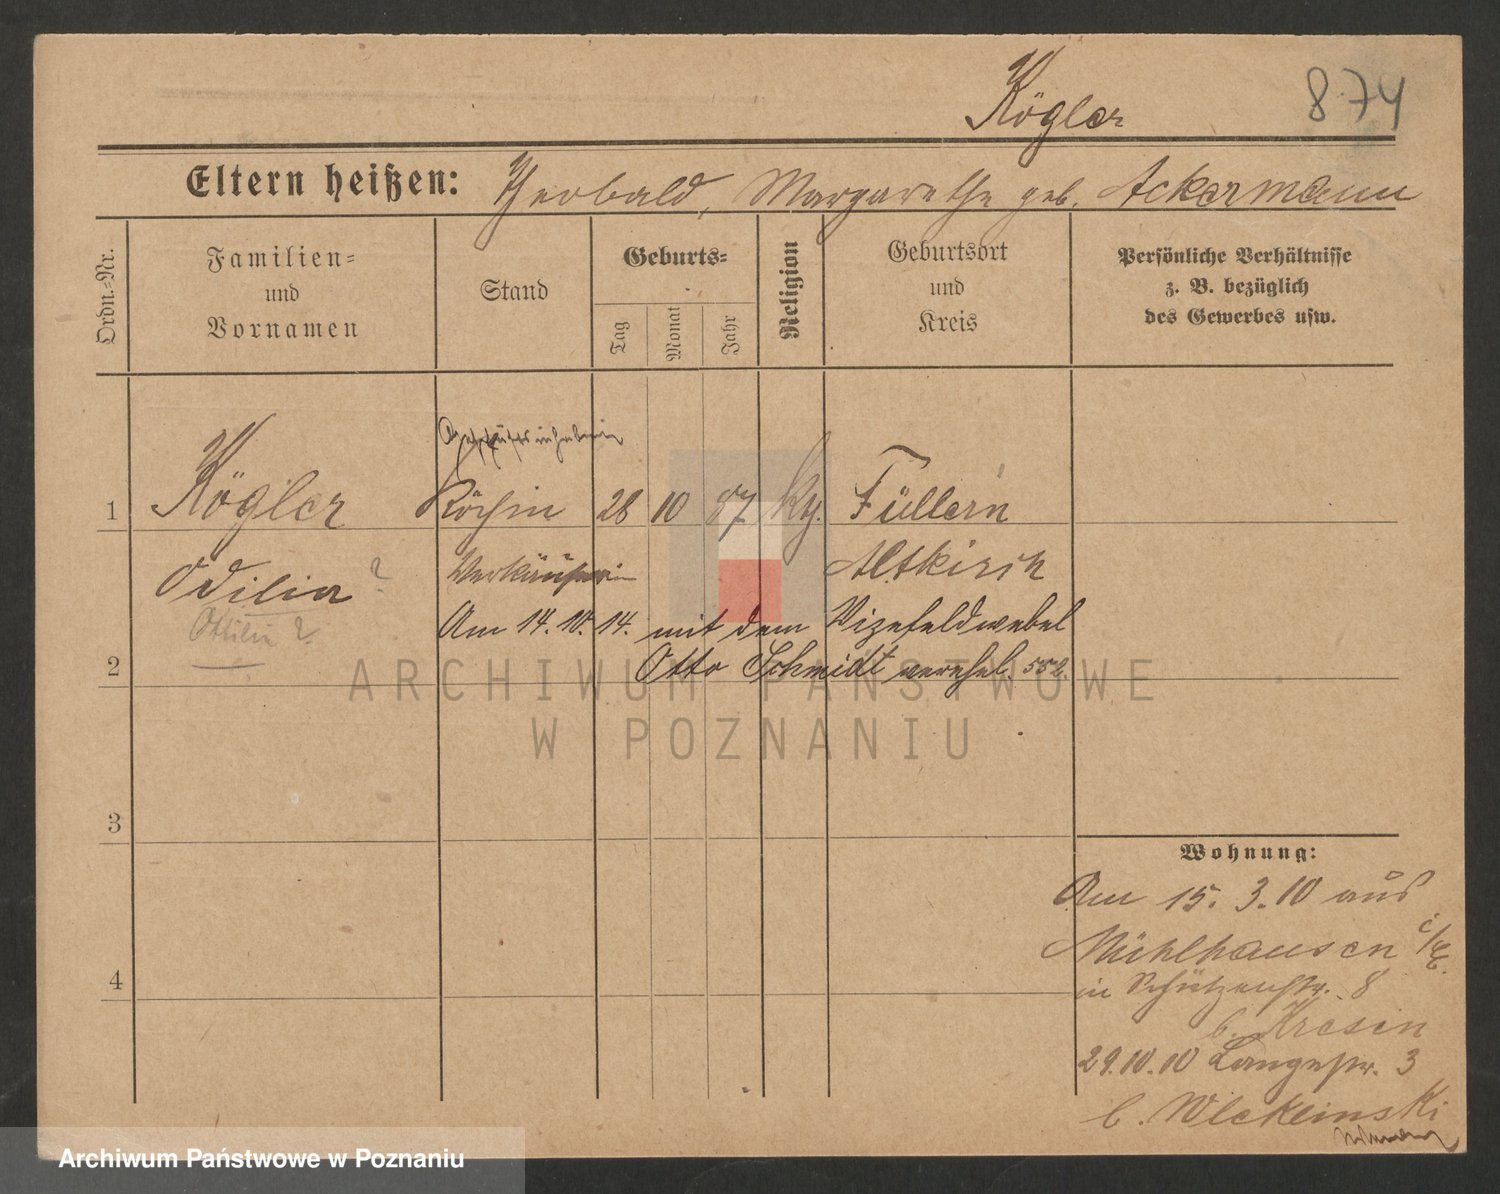 Kögler
874
Eltern heißen: Theobald, Margarethe geb. Ackermann
Ordn.-Nr.
Familien-
und
Vornamen
Stand
Geburts-
Tag
Monat
Jahr
Religion
Geburtsort
und
Kreis
Persönliche Verhältnisse
z. B. bezüglich
des Gewerbes usw.
Geschäftsinhaberin
1 Kögler Köchin 28 10 87 Füllern
Odilia ? Verkäuferin Altkirch
Ottilie ?
Am 14. 10. 14. mit dem Vizefeldwebel
2 Otto Schmidt verehel. 552.
3
4
Wohnung:
Am 15. 3. 10 aus
Mühlhausen i/E.
in Schützenstr. 8
b. Kresen
29.10.10 Langestr. 3
b.
ARCHIWUM PAŃSTWOWE
W POZNANIU
Archiwum Państwowe w Poznaniu